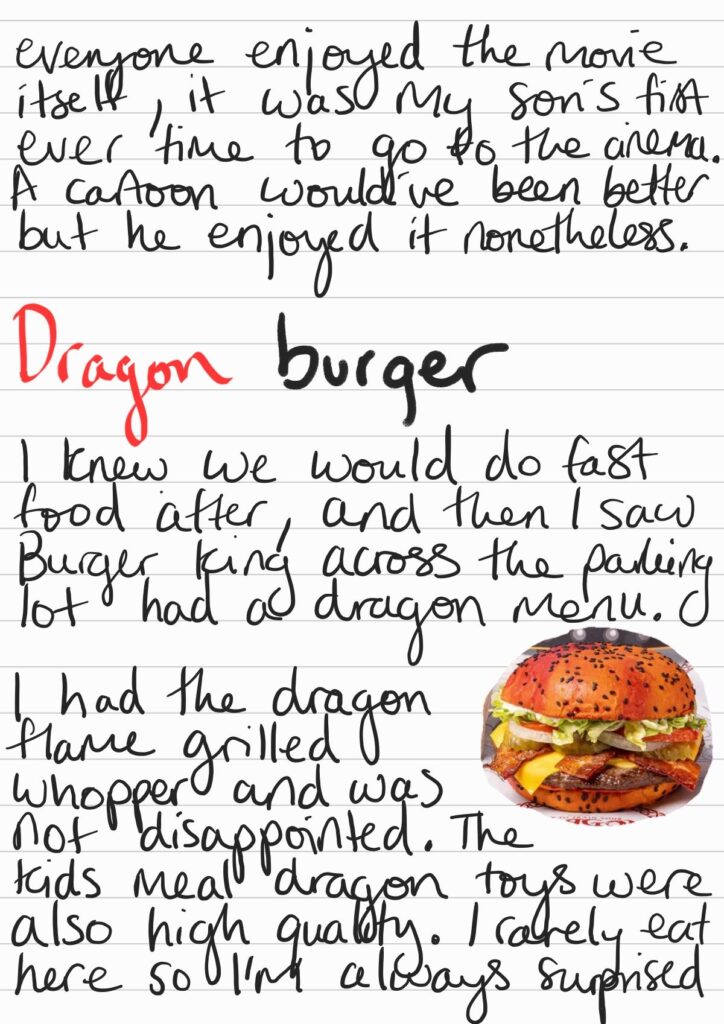 everyone enjoyed the movie
itself, it was my son's first
ever time to go to the cinema.
A cartoon would've been better
but he enjoyed it nonetheless.
Dragon burger
I knew we would do fast
food after, and then I saw
Burger King across the parking
lot had a dragon menu.
I had the dragon
flame grilled
whopper and was
not disappointed. The
kids meal dragon toys were
also high quality. I rarely eat
here so I'm always surprised